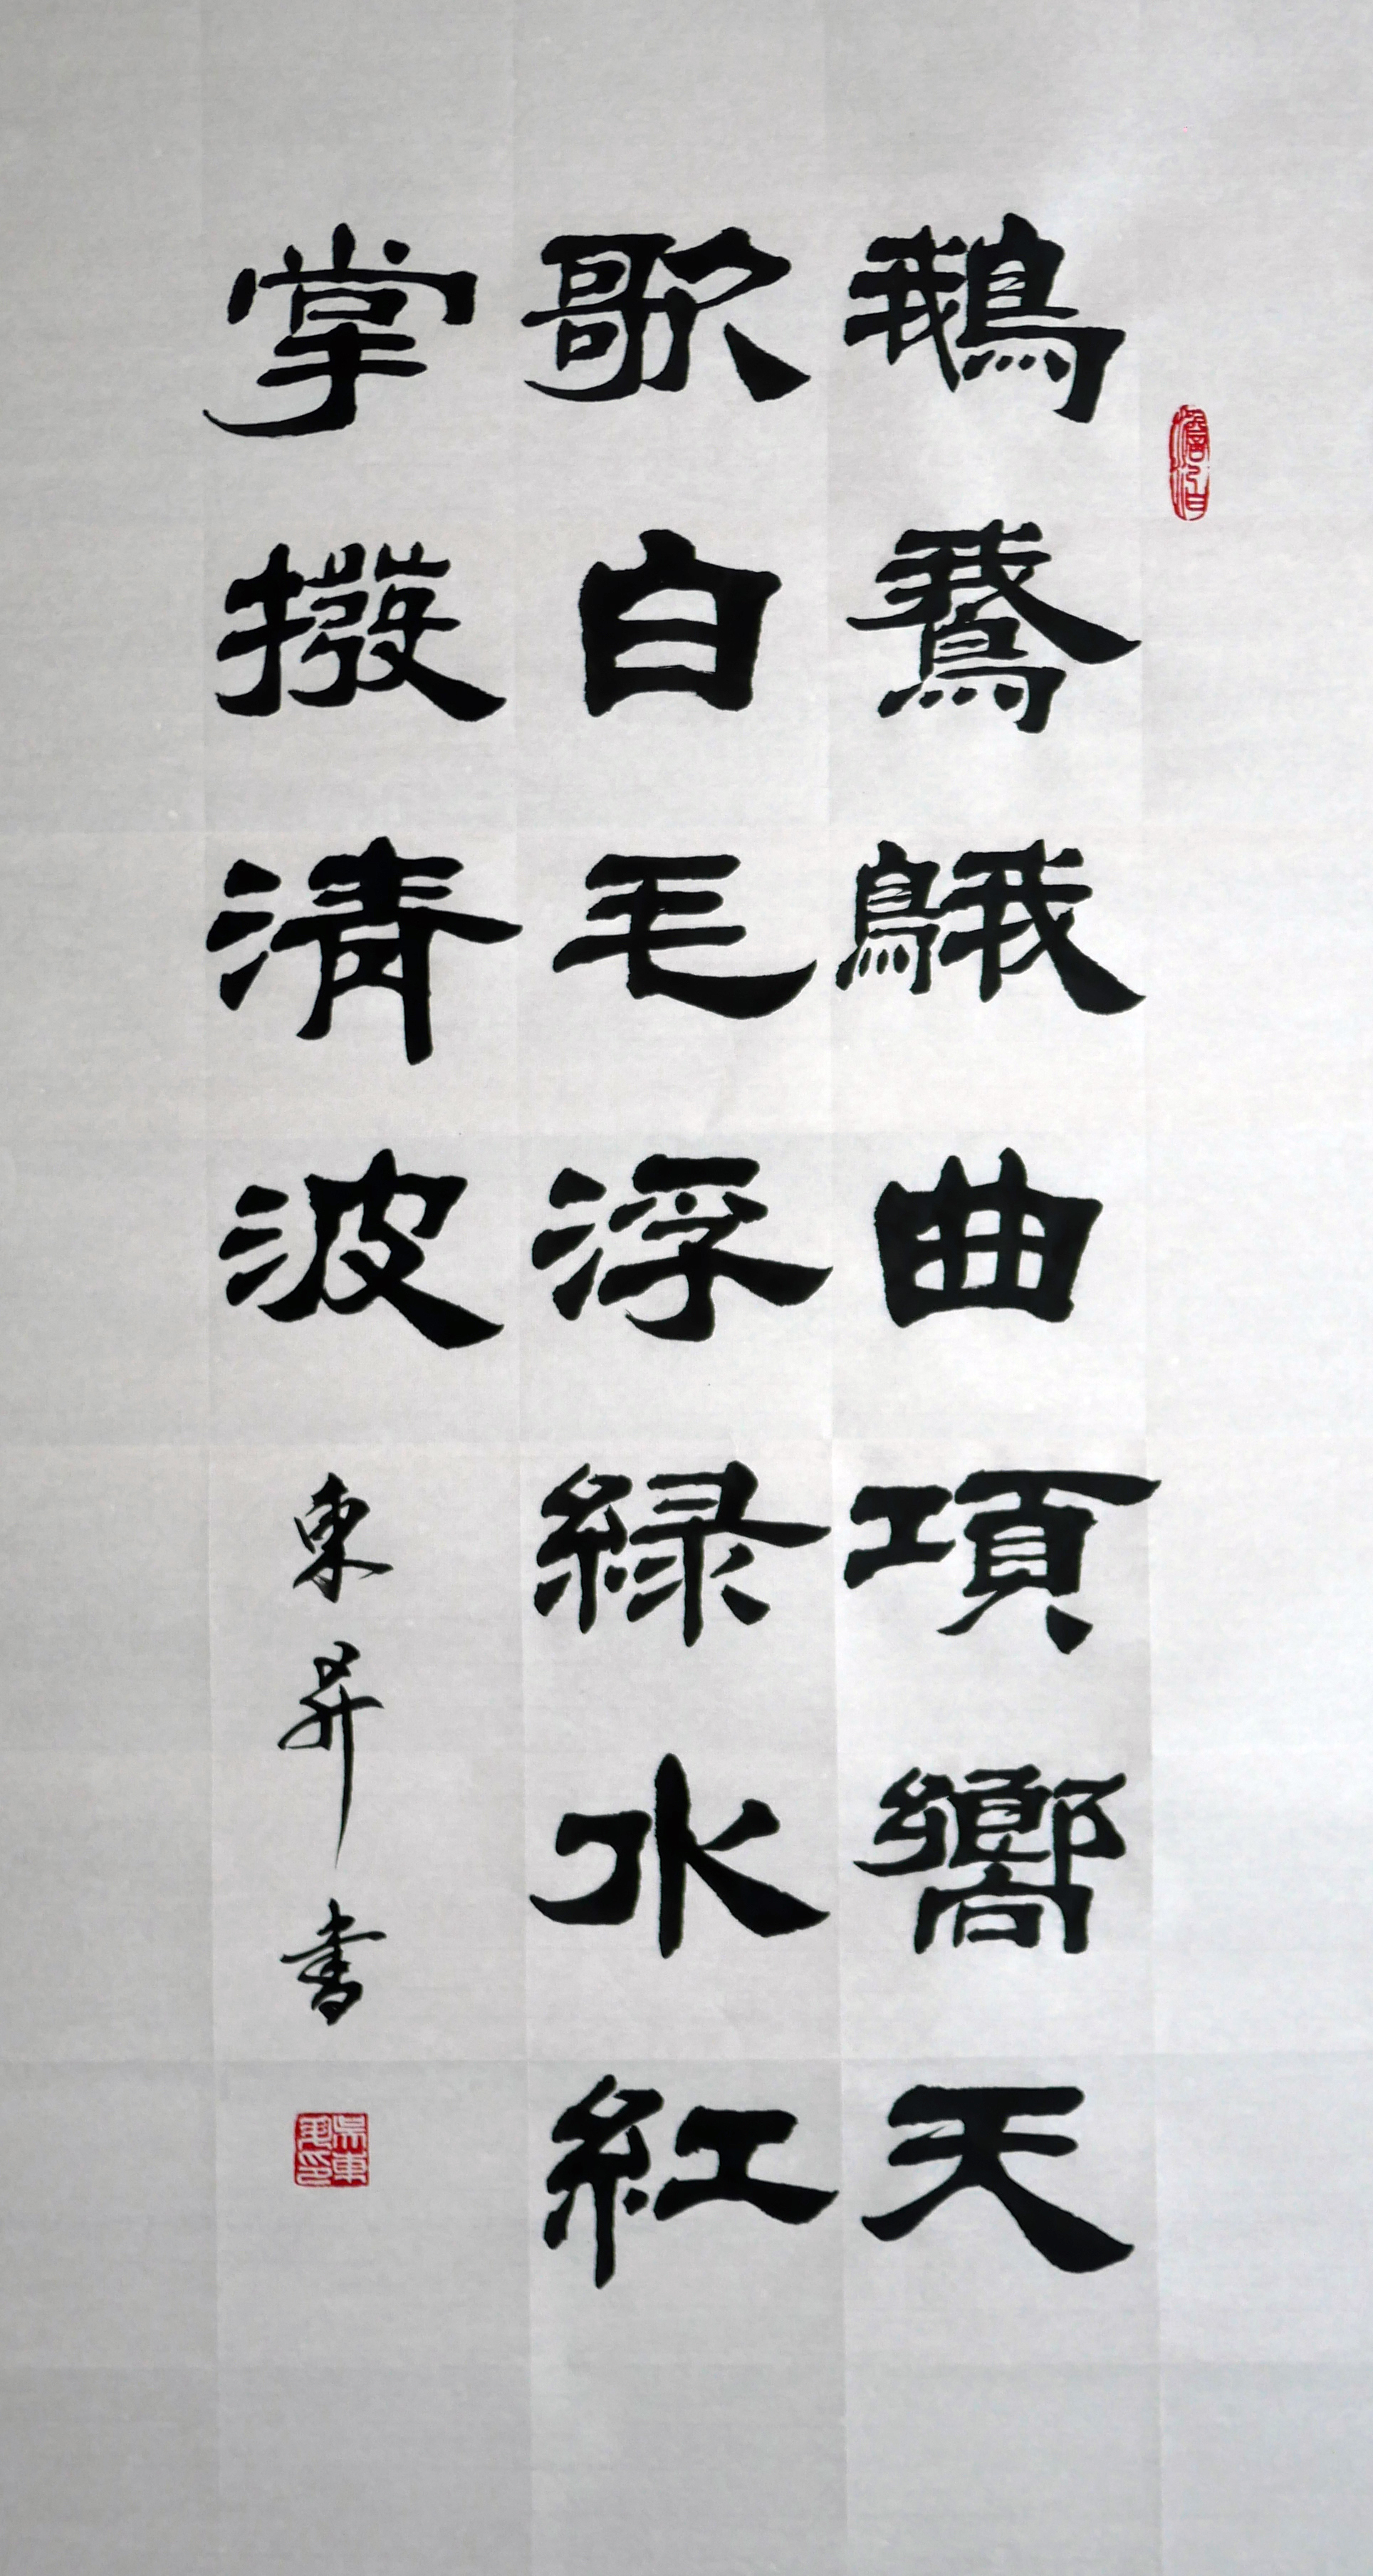 鵝鵞䳘曲項嚮天
歌白毛浮緑水紅
掌撥清波
東昇書
吳東昇印